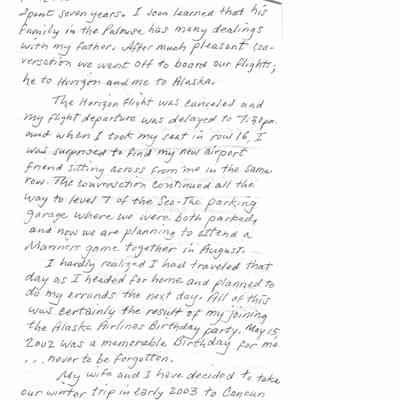 spent seven years. I soon learned that his
family in the Palouse has many dealings
with my father. After much pleasant con-
versation we went off to board our flights;
he to Horizon and me to Alaska.
The Horizon flight was canceled and
my flight departure was delayed to 7:30pm.
and when I took my seat in row 16, I
was surprised to find my new airport
friend sitting across from me in the same
row. The conversation continued all the
way to level 7 of the Sea-Tac parking
garage where we were both parked,
and now we are planning to attend a
Mariners game together in August.
I hardly realized I had traveled that
day as I headed for home and planned to
do my errands the next day. All of this
was certainly the result of my joining
the Alaska Airlines Birthday party. May 15,
2002 was a memorable Birthday for me
... never to be forgotten.
My wife and I have decided to take
our winter trip in early 2003 to Cancun